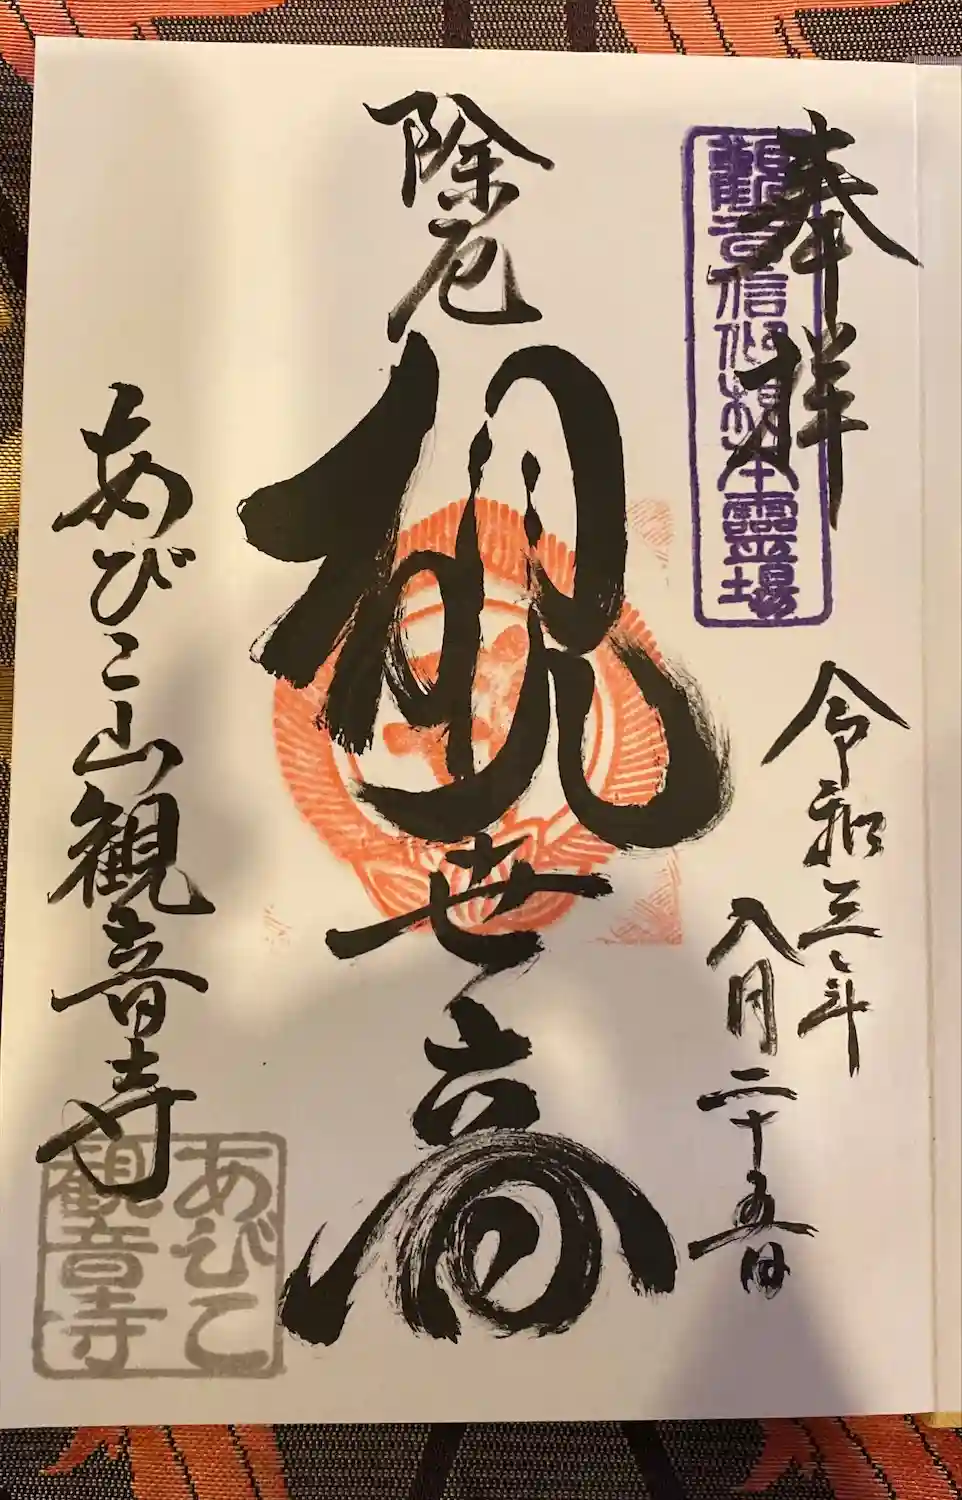 奉拝
觀音信仰根本靈場
令和三年
八月二十五日
除厄
観世音
あびこ山観音寺
あびこ
観音寺